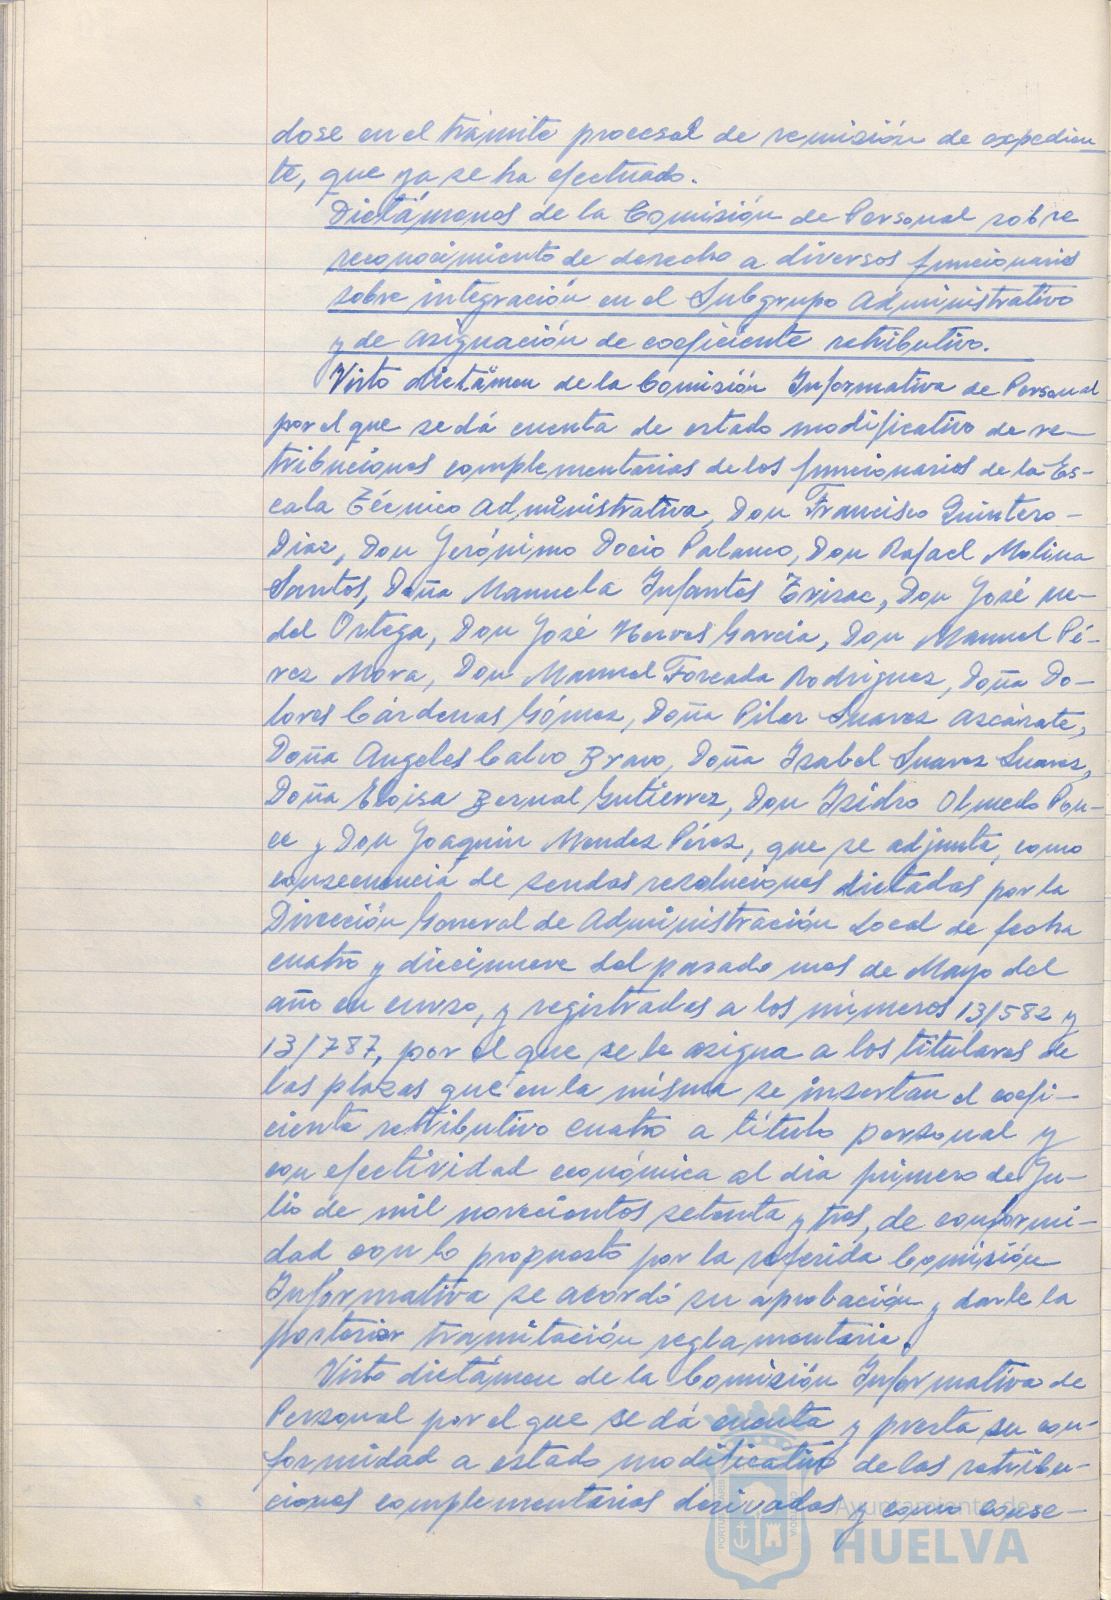 dose en el trámite procesal de remisión de expedien
te, que ya se ha efectuado.
Dictámenes de la Comisión de Personal sobre
reconocimiento de derecho a diversos funcionarios
sobre integración en el Subgrupo Administrativo
y de asignación de coeficiente retributivo.
Visto dictámen de la Comisión Informativa de Personal
por el que se dá cuenta de estado modificativo de re-
tribuciones complementarias de los funcionarios de la Es-
cala Técnico Administrativa, Don Francisco Quintero-
Diaz, Don Gerónimo Docio Palanco, Don Rafael Molina
Santos, Doña Manuela Infantes Don José Me-
del Ortega, Don José Herves Garcia, Don Manuel Pé-
rez Mora, Don Manuel Forcada Rodriguez, Doña Do-
lores Cárdenas Gómez, Doña Pilar Suarez Azcárate,
Doña Angeles Calvo Bravo, Doña Isabel Suarez Suarez,
Doña Eloisa Bernal Gutierrez, Don Isidro Olmedo Pon-
ce y Don Joaquin Mendez Pérez, que se adjunta, como
consecuencia de sendas resoluciones dictadas por la
Dirección General de Administración Local de fecha
cuatro y diecinueve del pasado mes de Mayo del
año en curso, y registradas a los números 13/582 y
13/787, por el que se le asigna a los titulares de
las plazas que en la misma se insertan el coefi-
ciente retributivo cuatro a título personal y
con efectividad económica al dia primero de Ju-
lio de mil novecientos setenta y tres, de conformi-
dad con lo propuesto por la referida Comisión
Informativa se acordó su aprobación y darle la
posterior tramitación reglamentaria.
Visto dictámen de la Comisión Informativa de
Personal por el que se dá cuenta y presta su con-
formidad a estado modificativo de las retribu-
ciones complementarias derivadas y como conse-
Ayuntamiento de
HUELVA